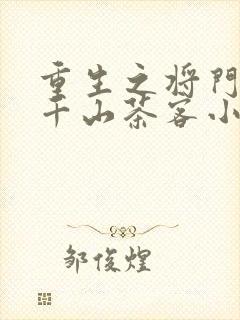 重生之将门
千山茶客小
邹俊煌